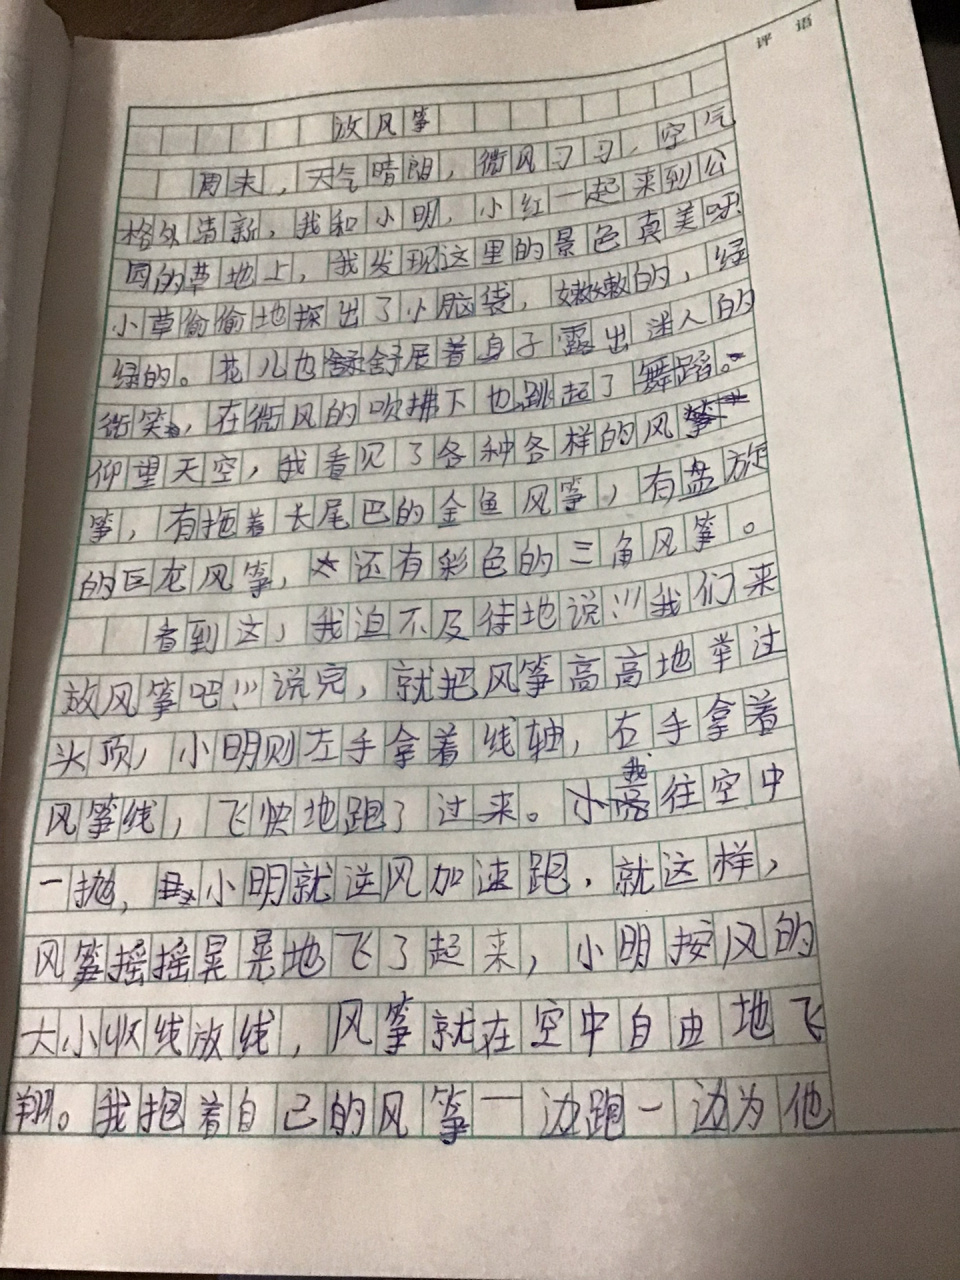 评 语
放风筝
周末，天气晴朗，微风习习，空气
格外清新，我和小明，小红一起来到公
园的草地上，我发现这里的景色真美呀！
小草偷偷地探出了小脑袋，嫩嫩的，绿
绿的。花儿也舒展着身子露出迷人的
微笑，在微风的吹拂下也跳起了舞蹈。
仰望天空，我看见了各种各样的风
筝，有拖着长尾巴的金鱼风筝，有盘旋
的巨龙风筝，还有彩色的三角风筝。
看到这，我迫不及待地说："我们来
放风筝吧！"说完，就把风筝高高地举过
头顶，小明则左手拿着线轴，右手拿着
风筝线，飞快地跑了过来。我往空中
一抛，小明就逆风加速跑，就这样，
风筝摇摇晃晃地飞了起来，小明按风的
大小收线放线，风筝就在空中自由地飞
翔。我抱着自己的风筝一边跑一边为他